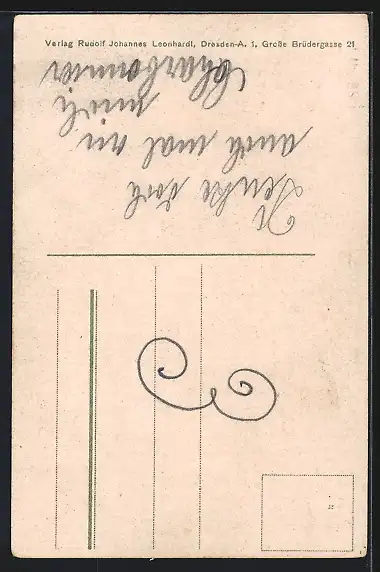 Verlag Rudolf Johannes Leonhardi, Dresden-A. 1, Große Brüdergasse 21
Denke doch
auch mal an
mich